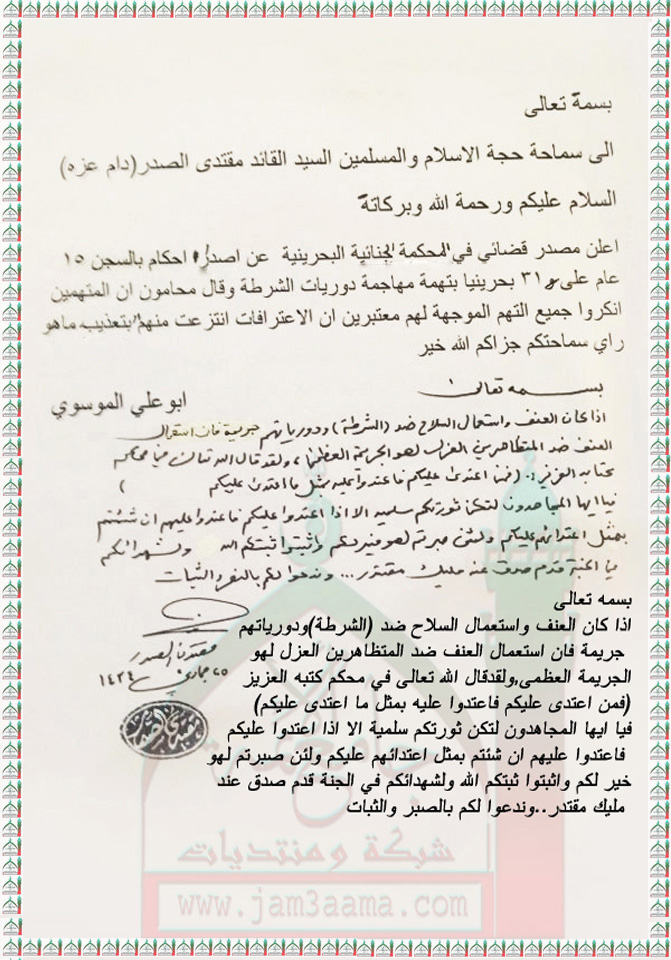 بسمة تعالى
الى سماحة حجة الاسلام والمسلمين السيد القائد مقتدى الصدر(دام عزه)
السلام عليكم ورحمة الله وبركاتة
اعلن مصدر قضائي في المحكمة الجنائية البحرينية عن اصدار احكام بالسجن ١٥
عام على ٣١ بحرينيا بتهمة مهاجمة دوريات الشرطة وقال محامون ان المتهمين
انكروا جميع التهم الموجهة لهم معتبرين ان الاعترافات انتزعت منهم بتعذيب ماهو
راي سماحتكم جزاكم الله خير
ابو علي الموسوي
بسمه تعالى
اذا كان العنف واستعمال السلاح ضد (الشرطة) ودورياتهم جريمة فان استعمال
العنف ضد المتظاهرين العزل لهو الجريمة العظمى، ولقد قال الله تعالى في محكم
كتابه العزيز: (فمن اعتدى عليكم فاعتدوا عليه بمثل ما اعتدى عليكم)
فيا ايها المجاهدون لتكن ثورتكم سلمية الا اذا اعتدوا عليكم فاعتدوا عليهم ان شئتم
بمثل اعتدائهم عليكم ولئن صبرتم لهو خير لكم واثبتوا ثبتكم الله ولشهدائكم
في الجنة قدم صدق عند مليك مقتدر... وندعوا لكم بالصبر والثبات
مقتدى الصدر
١٤٣٤
بسمه تعالى
اذا كان العنف واستعمال السلاح ضد (الشرطة)ودورياتهم
جريمة فان استعمال العنف ضد المتظاهرين العزل لهو
الجريمة العظمى,ولقدقال الله تعالى في محكم كتبه العزيز
(فمن اعتدى عليكم فاعتدوا عليه بمثل ما اعتدى عليكم)
فيا ايها المجاهدون لتكن ثورتكم سلمية الا اذا اعتدوا عليكم
فاعتدوا عليهم ان شئتم بمثل اعتدائهم عليكم ولئن صبرتم لهو
خير لكم واثبتوا ثبتكم الله ولشهدائكم في الجنة قدم صدق عند
مليك مقتدر..وندعوا لكم بالصبر والثبات
شبكة ومنتديات
www.jam3aama.com